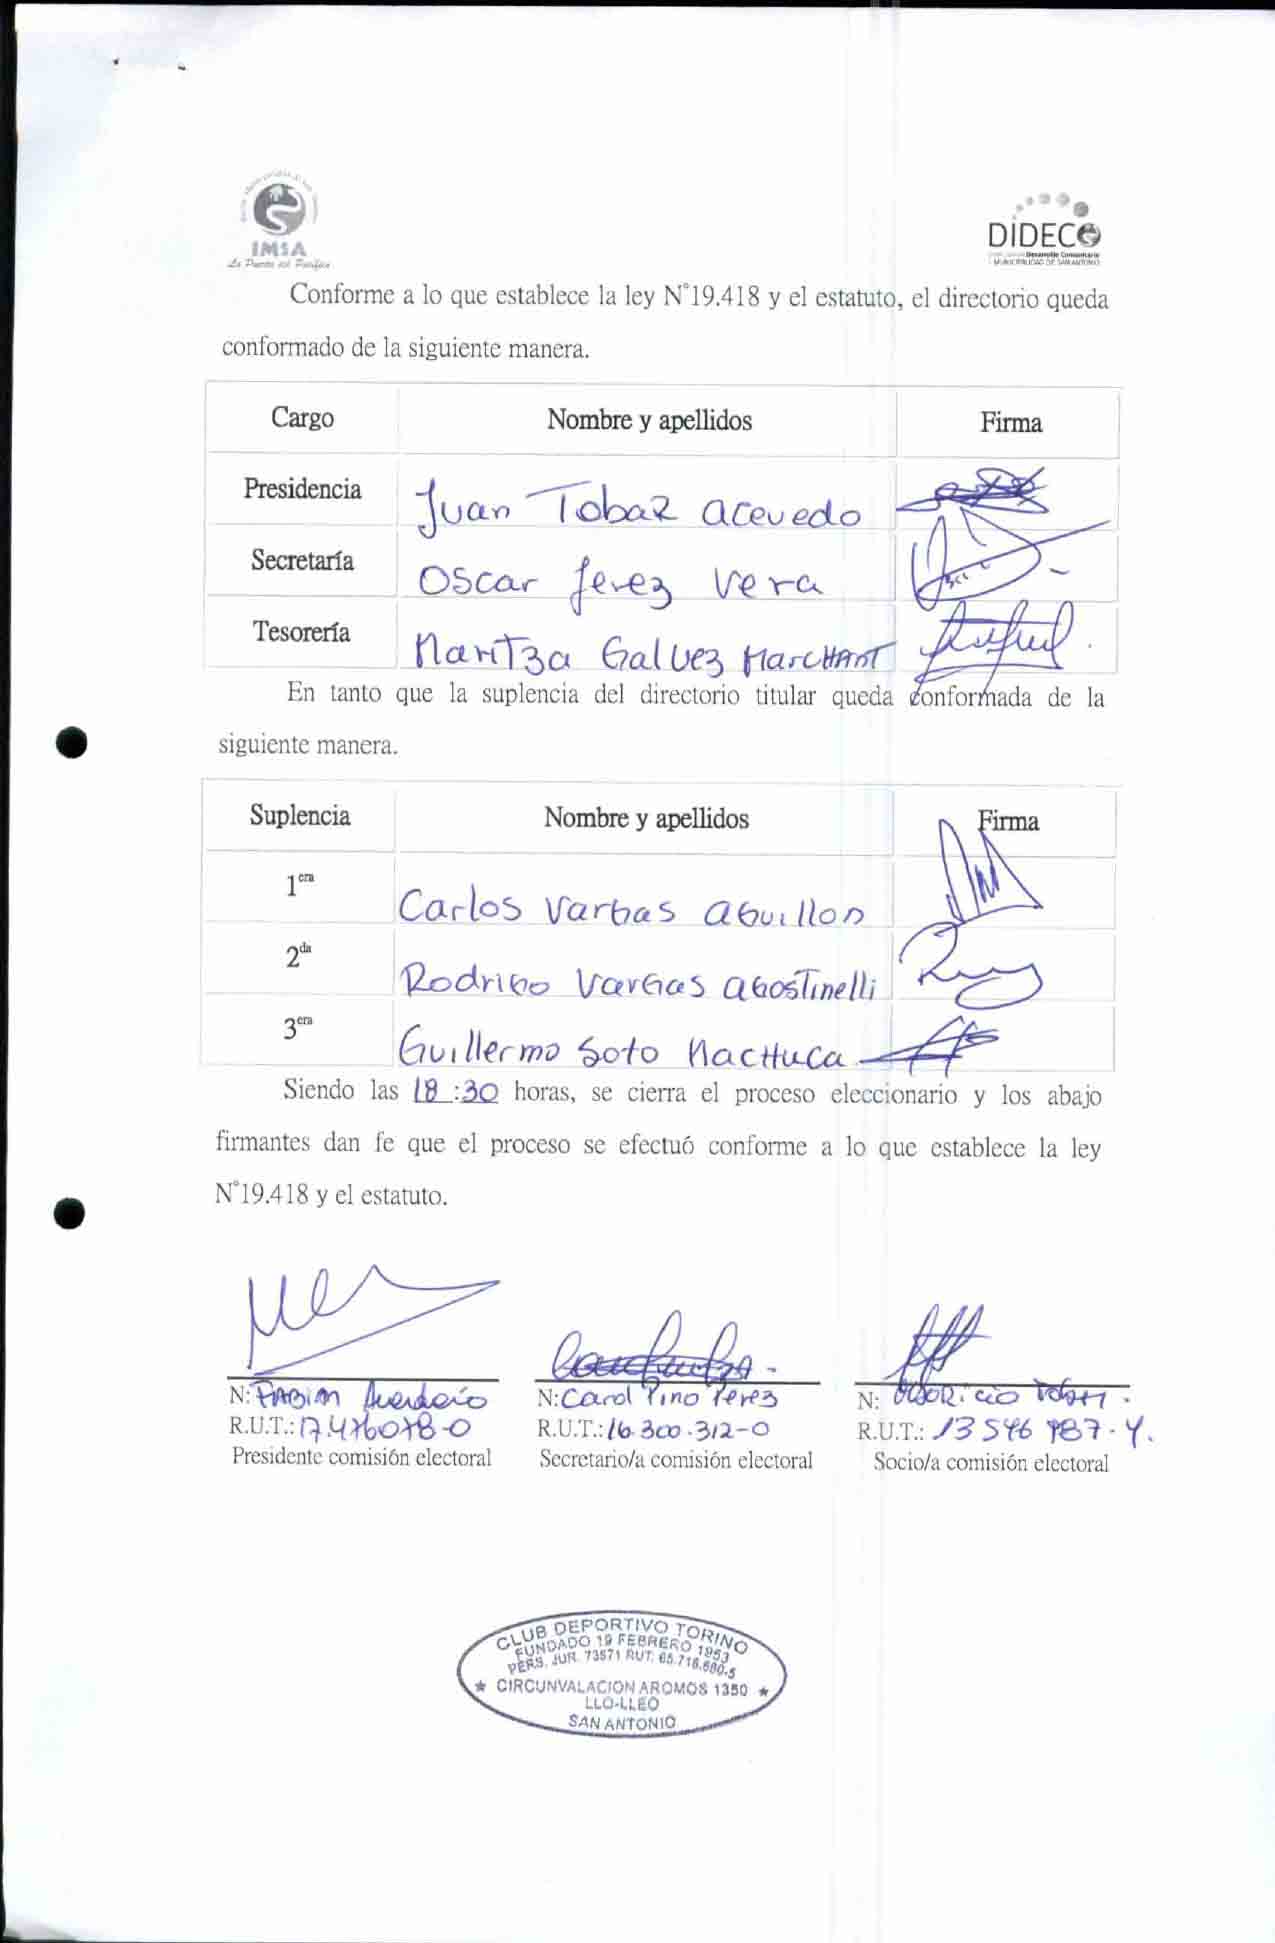 IMSA
La Puerta del Pacífico
DIDECO
Desarrollo Comunitario
MUNICIPALIDAD DE SAN ANTONIO
Conforme a lo que establece la ley N°19.418 y el estatuto, el directorio queda
conformado de la siguiente manera.
Cargo Nombre y apellidos Firma
Presidencia Juan Tobar Acevedo
Secretaría Oscar Jerez Vera
Tesorería Maritza Galvez Marchant
En tanto que la suplencia del directorio titular queda conformada de la
siguiente manera.
Suplencia Nombre y apellidos Firma
1era Carlos Vargas Aguillon
2da Rodrigo Vargas Agostinelli
3era Guillermo Soto Machuca
Siendo las 18:30 horas, se cierra el proceso eleccionario y los abajo
firmantes dan fe que el proceso se efectuó conforme a lo que establece la ley
N°19.418 y el estatuto.
N: Fabian N: Carol Pino Perez N:
R.U.T.: 17.476078-0 R.U.T.: 16.300.312-0 R.U.T.: 13546 787-4.
Presidente comisión electoral Secretario/a comisión electoral Socio/a comisión electoral
CLUB DEPORTIVO TORINO
FUNDADO 19 FEBRERO 1953
PERS. JUR. 73571 RUT. 65.716.680-5
★ CIRCUNVALACION AROMOS 1350 ★
LLO-LLEO
SAN ANTONIO